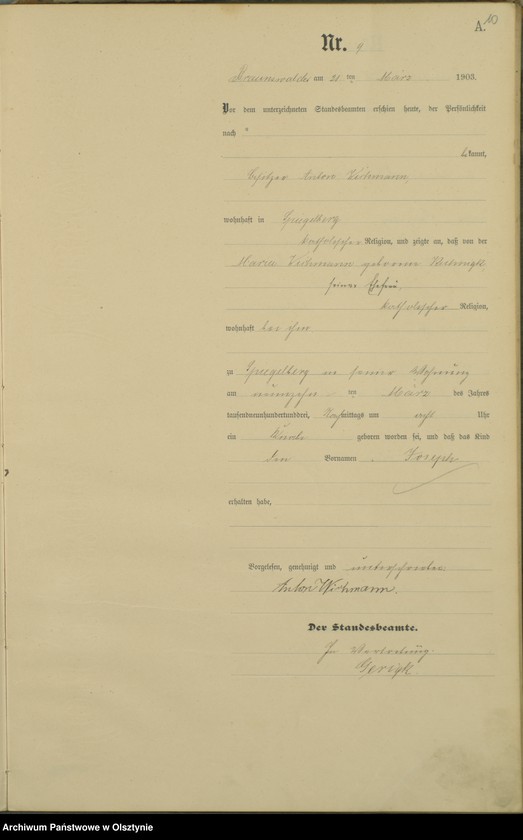 A. 10
Nr. 9
am 21 ten März 1903.
Vor dem unterzeichneten Standesbeamten erschien heute, der Persönlichkeit
nach
bekannt,
Besitzer Anton
wohnhaft in Spiegelberg
katholischer Religion, und zeigte an, daß von der
Maria geborene
seiner Ehefrau,
katholischer Religion,
wohnhaft bei ihm
zu Spiegelberg in seiner Wohnung
am neunzehn ten März des Jahres
tausendneunhundertunddrei, Nachmittags um acht Uhr
ein Knabe geboren worden sei, und daß das Kind
den Vornamen Joseph
erhalten habe.
Vorgelesen, genehmigt und unterschrieben
Anton
Der Standesbeamte.
In Vertretung.
Gerigk
Archiwum Państwowe w Olsztynie